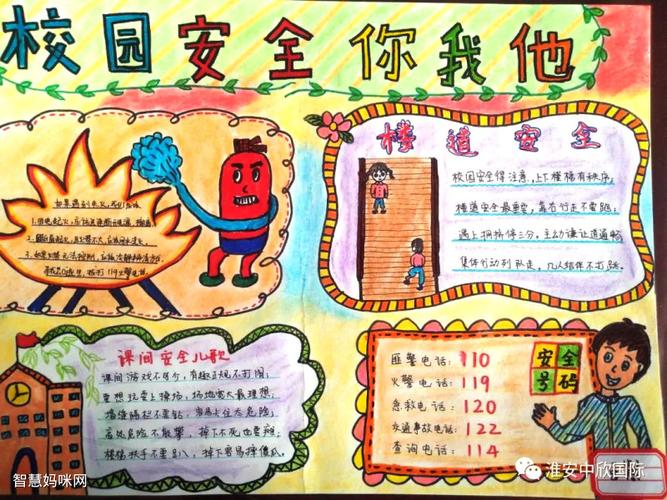 校园安全你我他
如果遇到火灾，我们应该
3.如果火势无法控制，应该冷静拨打119火警电话。
楼道安全
校园安全得注意，上下楼梯有秩序，
楼道安全最重要，靠右行走不要跑；
遇上拥挤停三分，主动谦让道通畅
集体行动列队走，几人结伴不打跳。
课间安全儿歌
课间游戏不可少，有趣正规不打闹；
要想玩耍上操场，场地宽大最理想；
墙缝隔栏不要钻，卡住大危险；
高处危险不能攀，掉下不死也要瘫；
楼梯扶手不要趴，掉下容易摔傻瓜。
匪警电话：110
火警电话：119
急救电话：120
交通事故电话：122
查询电话：114
安全
号码
智慧妈咪网
淮安中欣国际